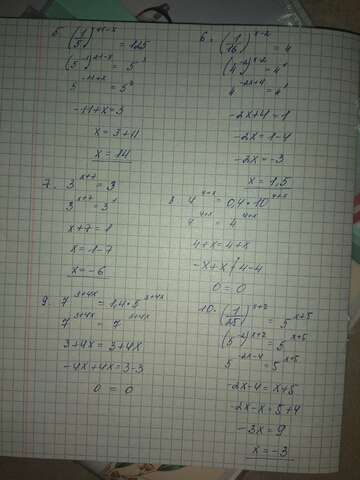 5. (1/5)^11-x = 125
(5^-1)^11-x = 5^3
5^-11+x = 5^3
-11+x=3
x = 3+11
x = 14
6. (1/16)^x-2 = 4
(4^-2)^x-2 = 4^1
4^-2x+4 = 4^1
-2x+4=1
-2x=1-4
-2x=-3
x=1,5
7. 3^x+7 = 3
3^x+7 = 3^1
x+7=1
x=1-7
x=-6
8. 4^4+x = 0,4·10^4+x
4^4+x = 4^4+x
4+x=4+x
-x+x 4-4
0=0
9. 7^3+4x = 1,4·5^3+4x
7^3+4x = 7^3+4x
3+4x=3+4x
-4x+4x=3-3
0 = 0
10. (1/25)^x+2 = 5^x+5
(5^-2)^x+2 = 5^x+5
5^-2x-4 = 5^x+5
-2x-4=x+5
-2x-x=5+4
-3x=9
x=-3